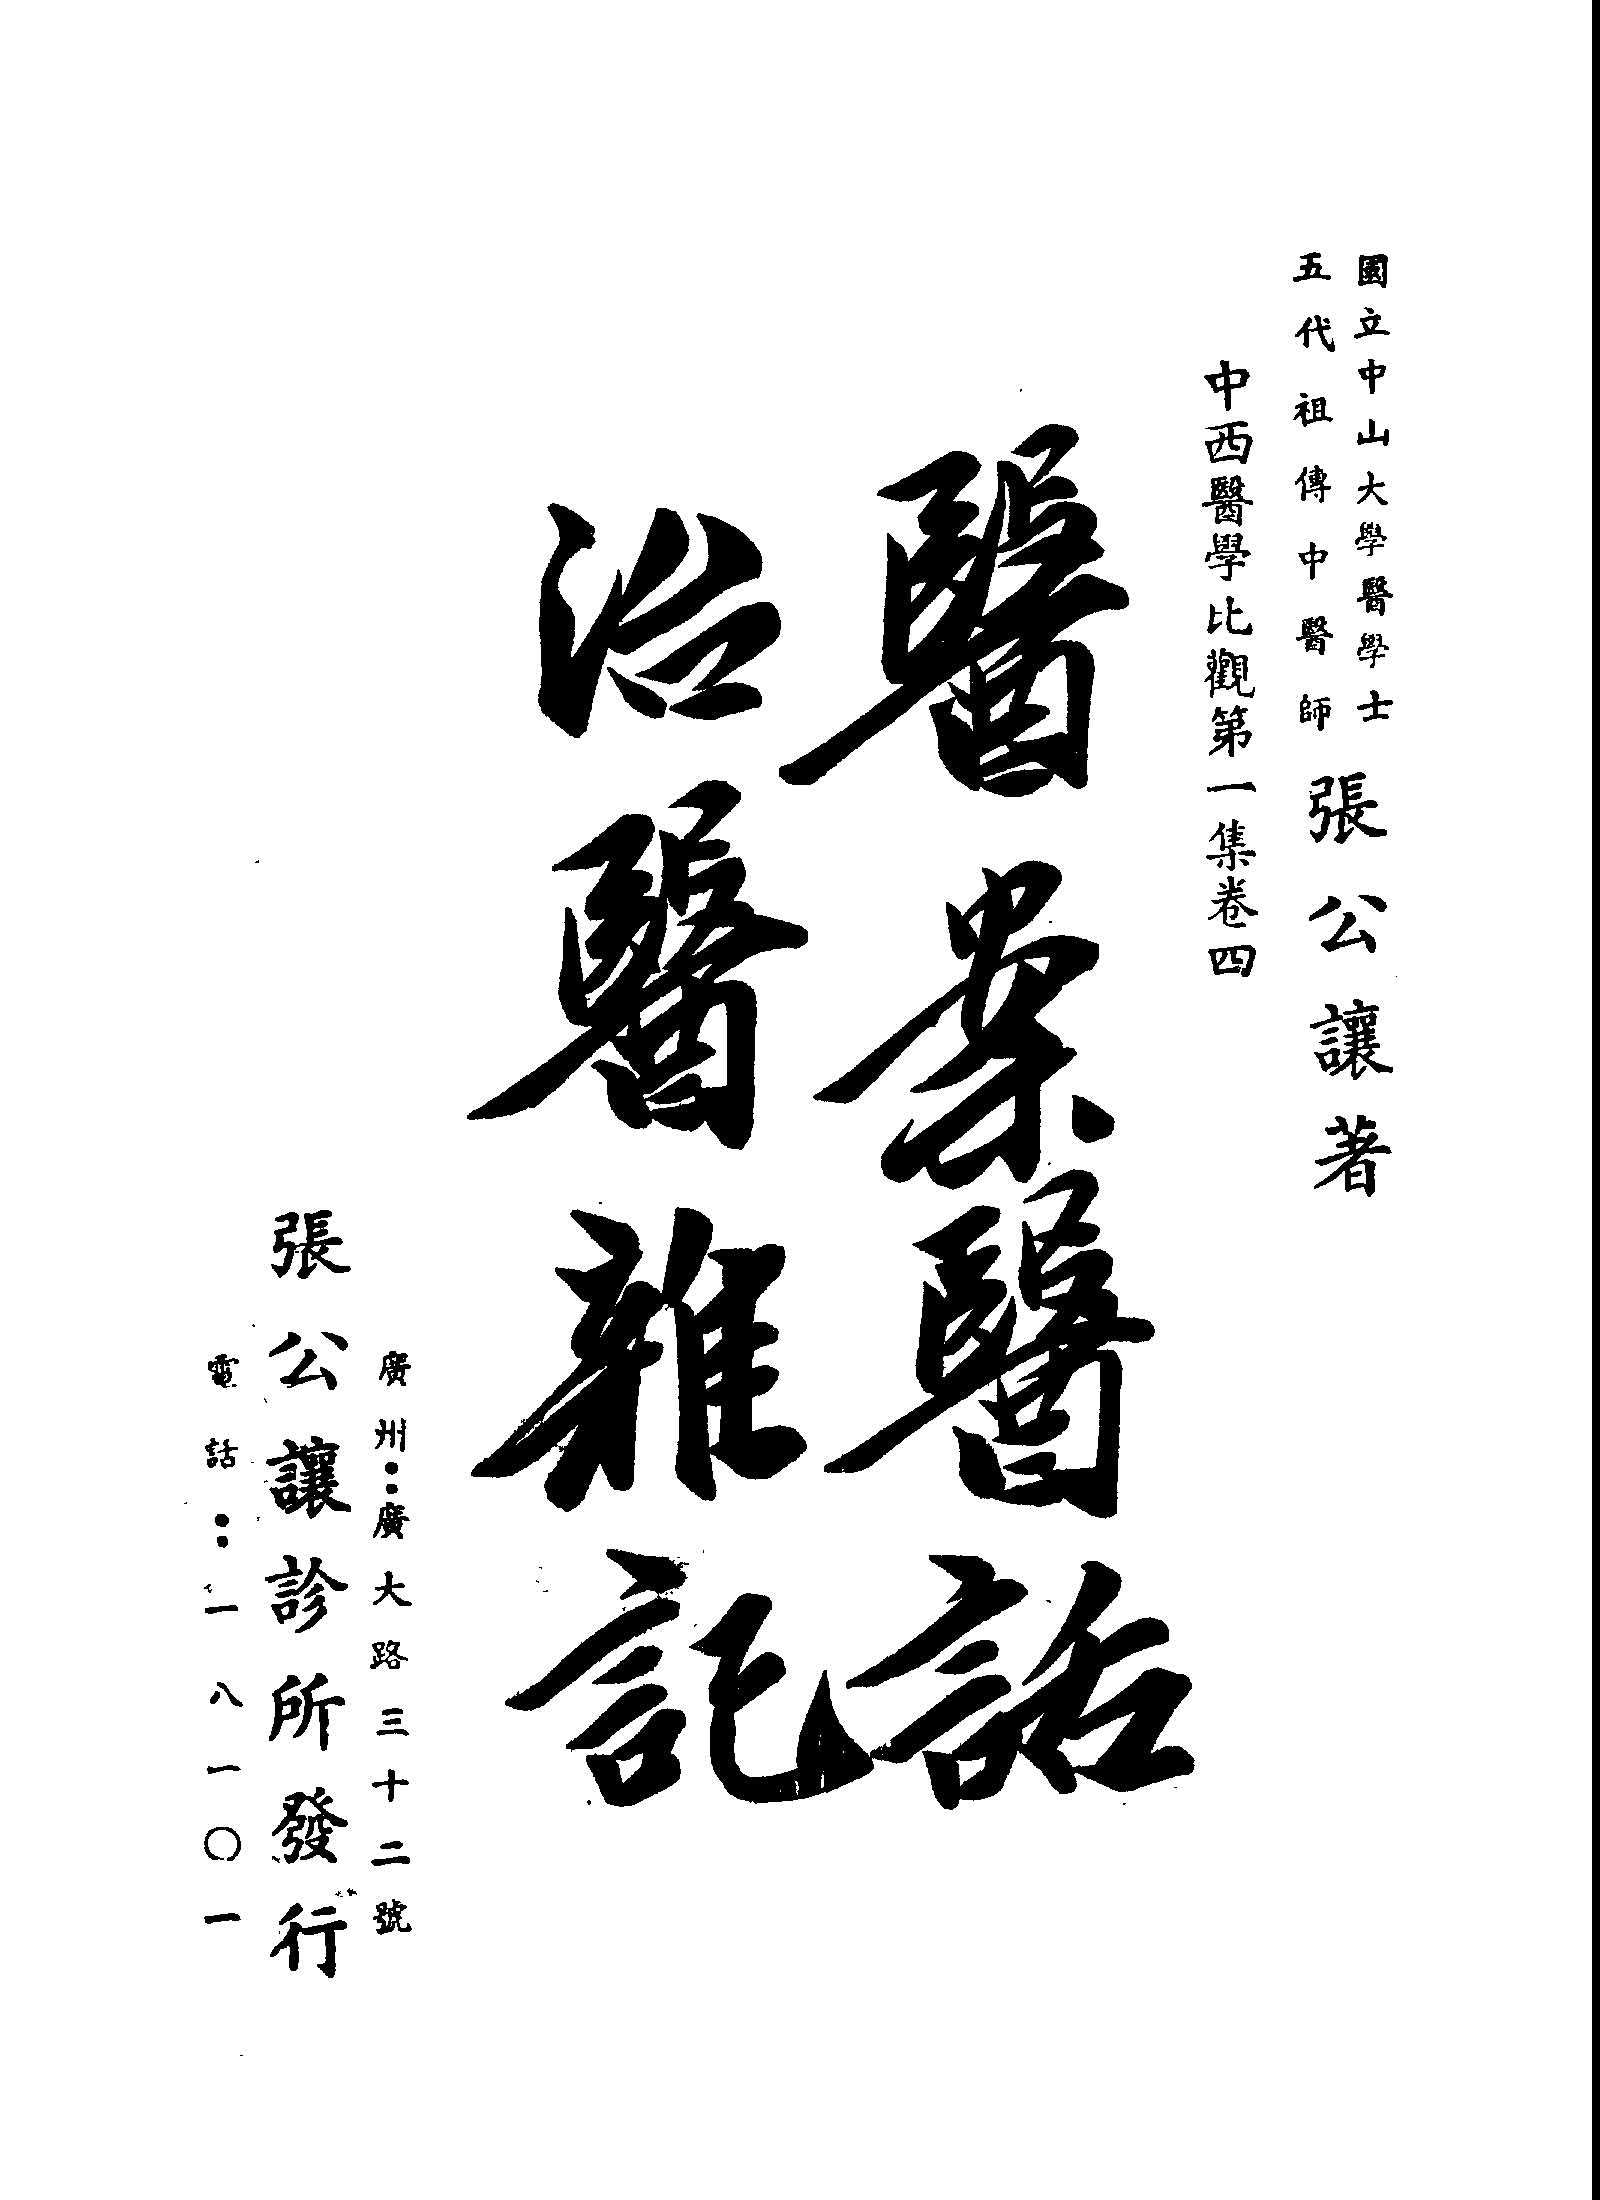 國立中山大學醫學士
五代祖傳中醫師
張公讓著
中西醫學比觀第一集卷四
醫案醫話
治醫雜記
廣州：廣大路三十二號
張公讓診所發行
電話：一八一〇一